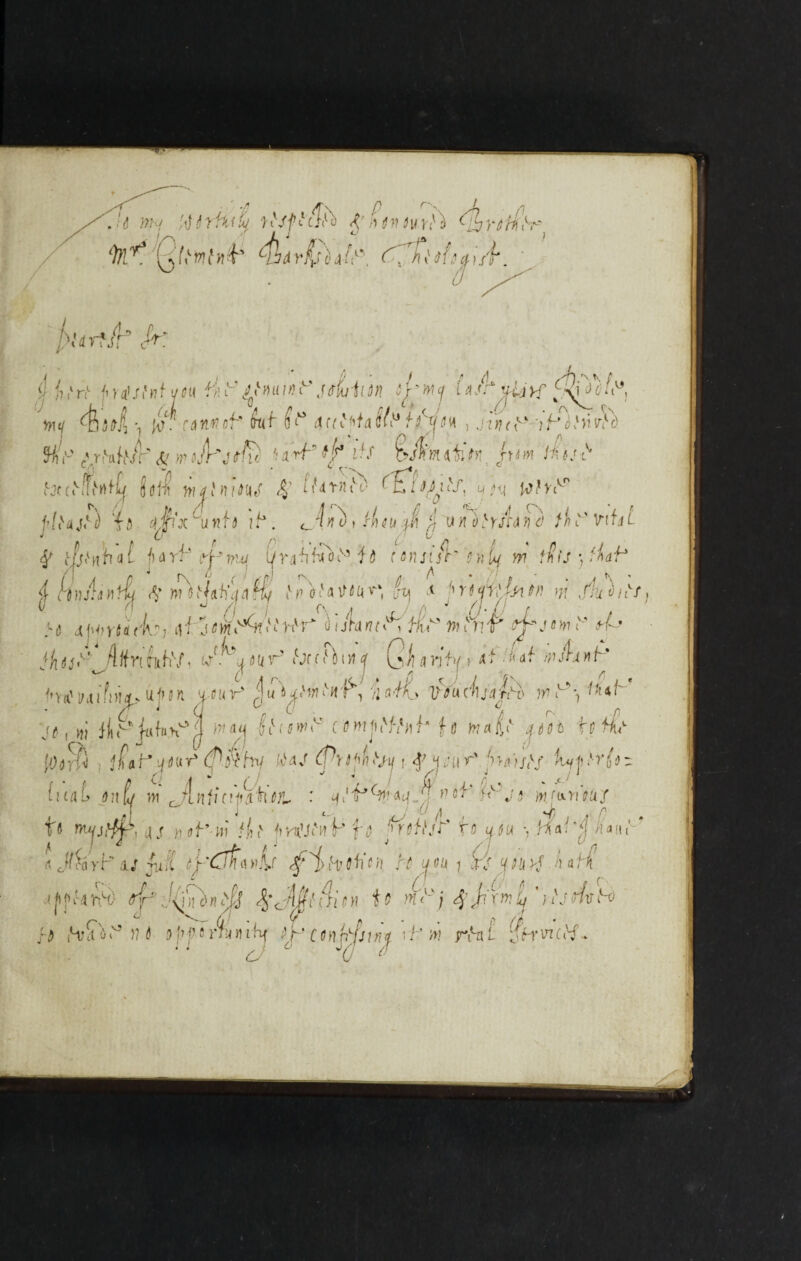 To my worthily respected & honoured Brother,
Mr. Clement Barksdale. Theologist.
Dearest Sr:
I here præsent you the genuine solution of my last years Riddle,
my Book; wch cannot but be acceptable to you, since it derived
The greatest & most solid part of its Estimation from those
excellently both ingenious & learned Elogies, you were
pleased to affix unto it. And, though I understand the vital
& essential part of my Gratitude to consist only in this; that
I constantly & indefatigably endeavour, by a progression in studies,
to approach, at some nearer distance, the merit of some of
those Attributes, wch your exceeding Charity, at that instant
prævailing upon your Judgement, hath vouchsafed me; that
so, in the future I may become competent to make good to the
World, that your Poetry was Prophesy, & your praises hyperbo-
lical only in Anticipation: yet may I not be so injurious
to myself, as not in the præsent to protest to you, that I have
a Heart as full of Thanks & Devotion to you, as yours hath
appeared of Kindness & Affection to me; & firmly resolved
to evade no opportunity of confessing it in real Services.